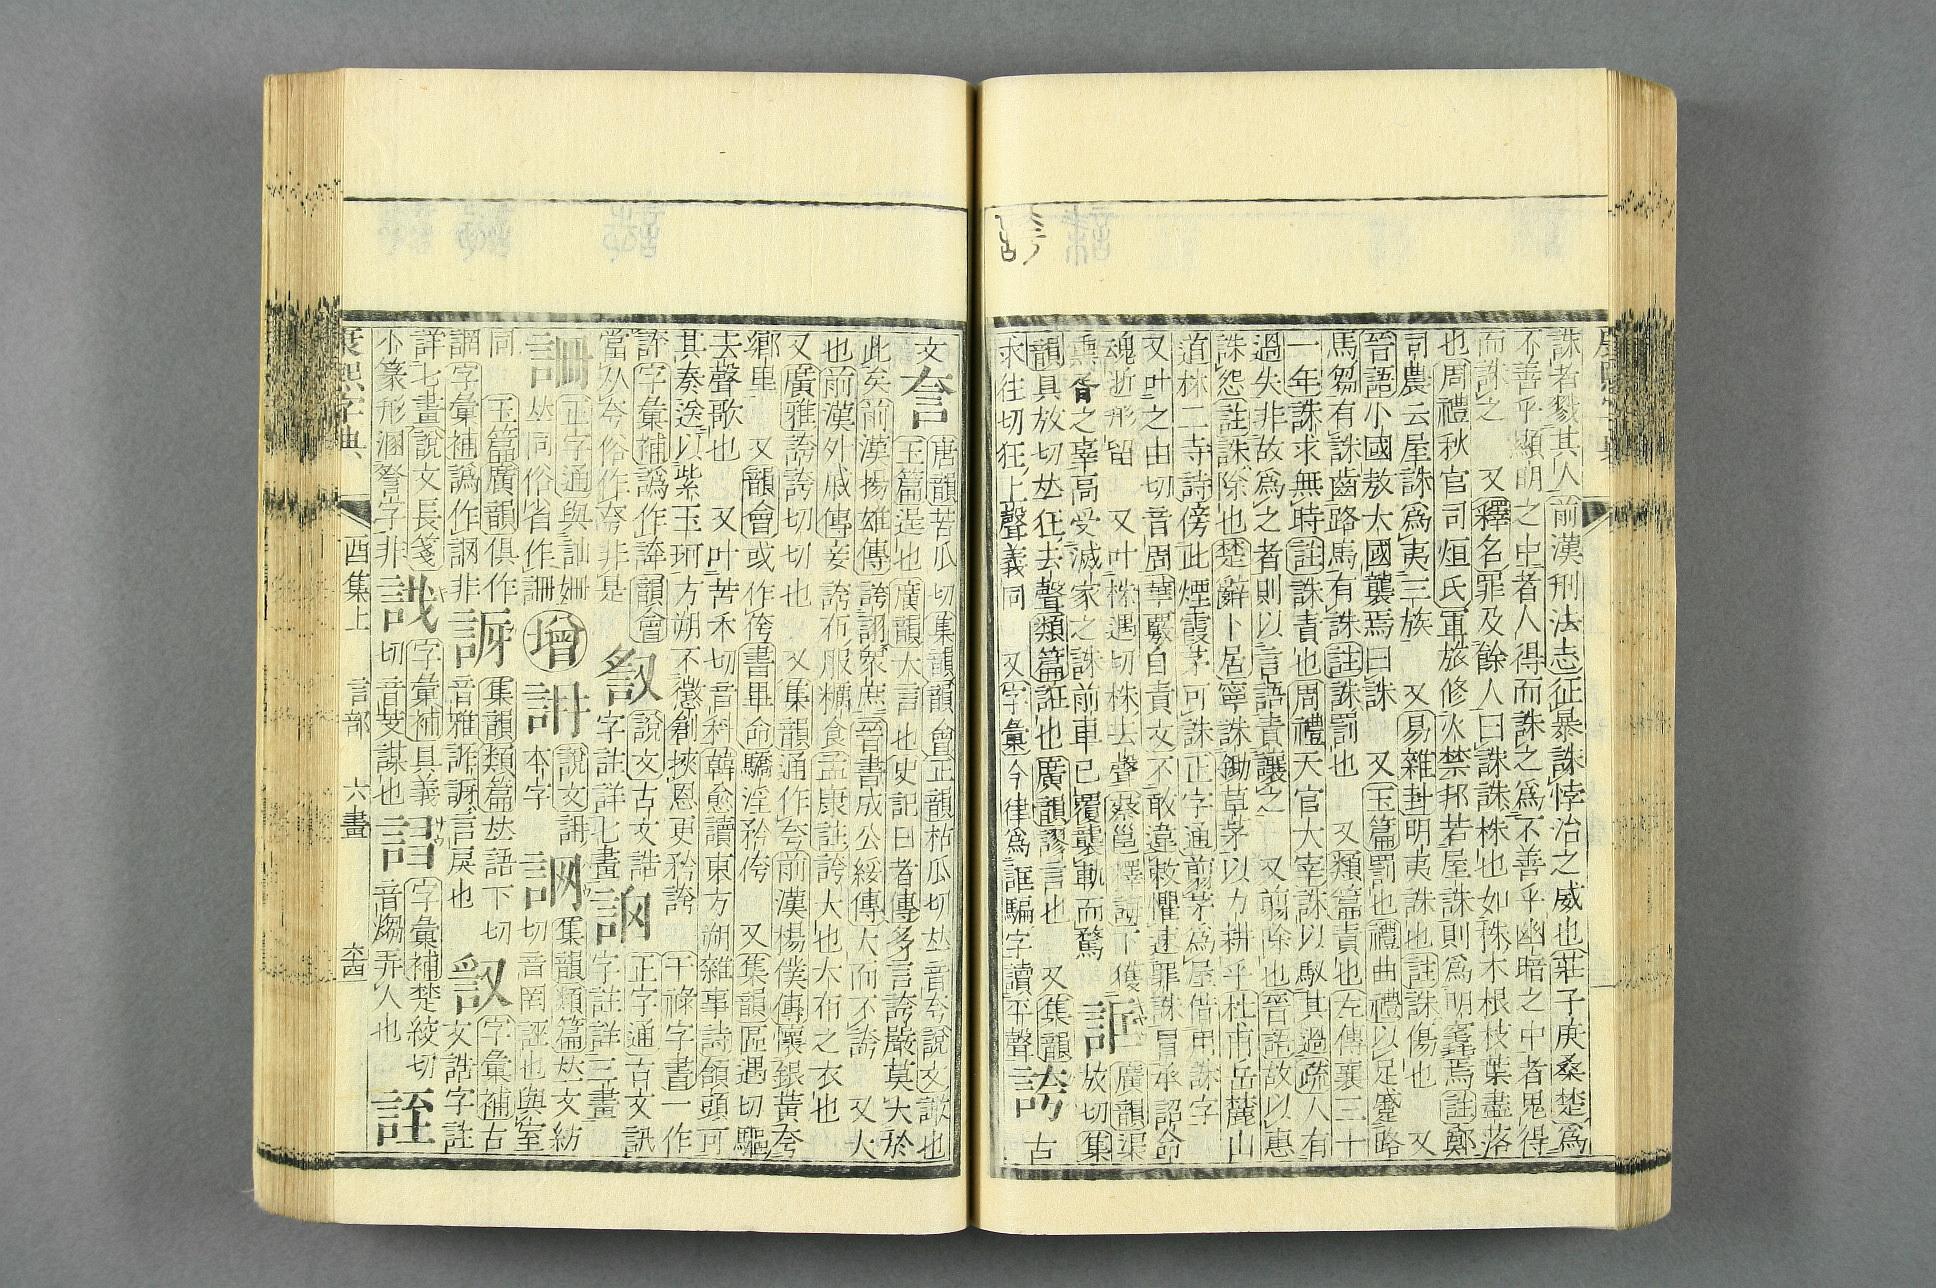 誅者戮其人前漢刑法志征暴誅悖治之威也莊子庚桑楚爲
不善乎顯明之中者人得而誅之爲不善乎幽暗之中者鬼得
而誅之　又釋名罪及餘人曰誅誅株也如株木根枝葉盡落
也周禮秋官司烜氏軍旅修火禁邦若屋誅則爲明竁焉註鄭
司農云屋誅爲夷三族　又易雜卦明夷誅也註誅傷也　又
晉語小國敖大國襲焉曰誅　又玉篇罰也禮曲禮以足蹙路
馬芻有誅齒路馬有誅註誅罰也　又類篇責也左傳襄三十
一年誅求無時註誅責也周禮天官大宰誅以馭其過疏人有
過失非故爲之者則以言語責讓之　又剪除也晉語故以惠
誅怨註誅除也楚辭卜居寧誅鋤草茅以力耕乎杜甫岳麓山
道林二寺詩傍此煙霞茅可誅正字通剪茅爲屋借用誅字
又叶之由切音周華覈自責文不敢違敕懼速罪誅冒承詔命
魂逝形留　又叶株遇切株去聲蔡邕釋誨下獲
熏胥之辜高受滅家之誅前車已覆襲軌而騖　誆　廣韻渠放切集
韻具放切𠀤狂去聲類篇誑也廣韻謬言也　又集韻
求往切狂上聲義同　又字彙今律爲誆騙字讀平聲　誇　古
文　唐韻苦瓜切集韻韻會正韻枯瓜切𠀤音夸說文譀也
玉篇逞也廣韻大言也史記日者傳多言誇嚴莫大於
此矣前漢揚雄傳誇詡衆庶晉書成公綏傳大而不誇　又人
也前漢外戚傳妾誇布服糲食孟康註誇大也大布之衣也
又廣雅誇誇切切也　又集韻通作夸前漢楊僕傳懷銀黃夸
鄉里　又韻會或作侉書畢命驕淫矜侉　又集韻區遇切驅
去聲歌也　又叶苦禾切音科韓愈讀東方朔雜事詩頷頭可
其奏送以紫玉珂方朔不懲創挾恩更矜誇　干祿字書一作
字彙補譌作　韻會
當从夸俗作夸非是　說文古文誥字註詳七畫　正字通古文訊字註詳三畫
正字通與訕姍𠀤同俗省作　增　說文　本字　集韻類篇𠀤文紡切音罔誣也與
同　玉篇廣韻俱作　字彙補譌作　非　訝　集韻類篇𠀤語下切音雅　言戾也　字彙補古文誥字註
詳七畫　說文長箋小篆形溷　字非　字彙補具義切音芰謀也　字彙補楚綾切音　弄人也　誙
康熙字典　酉集上　言部　六畫